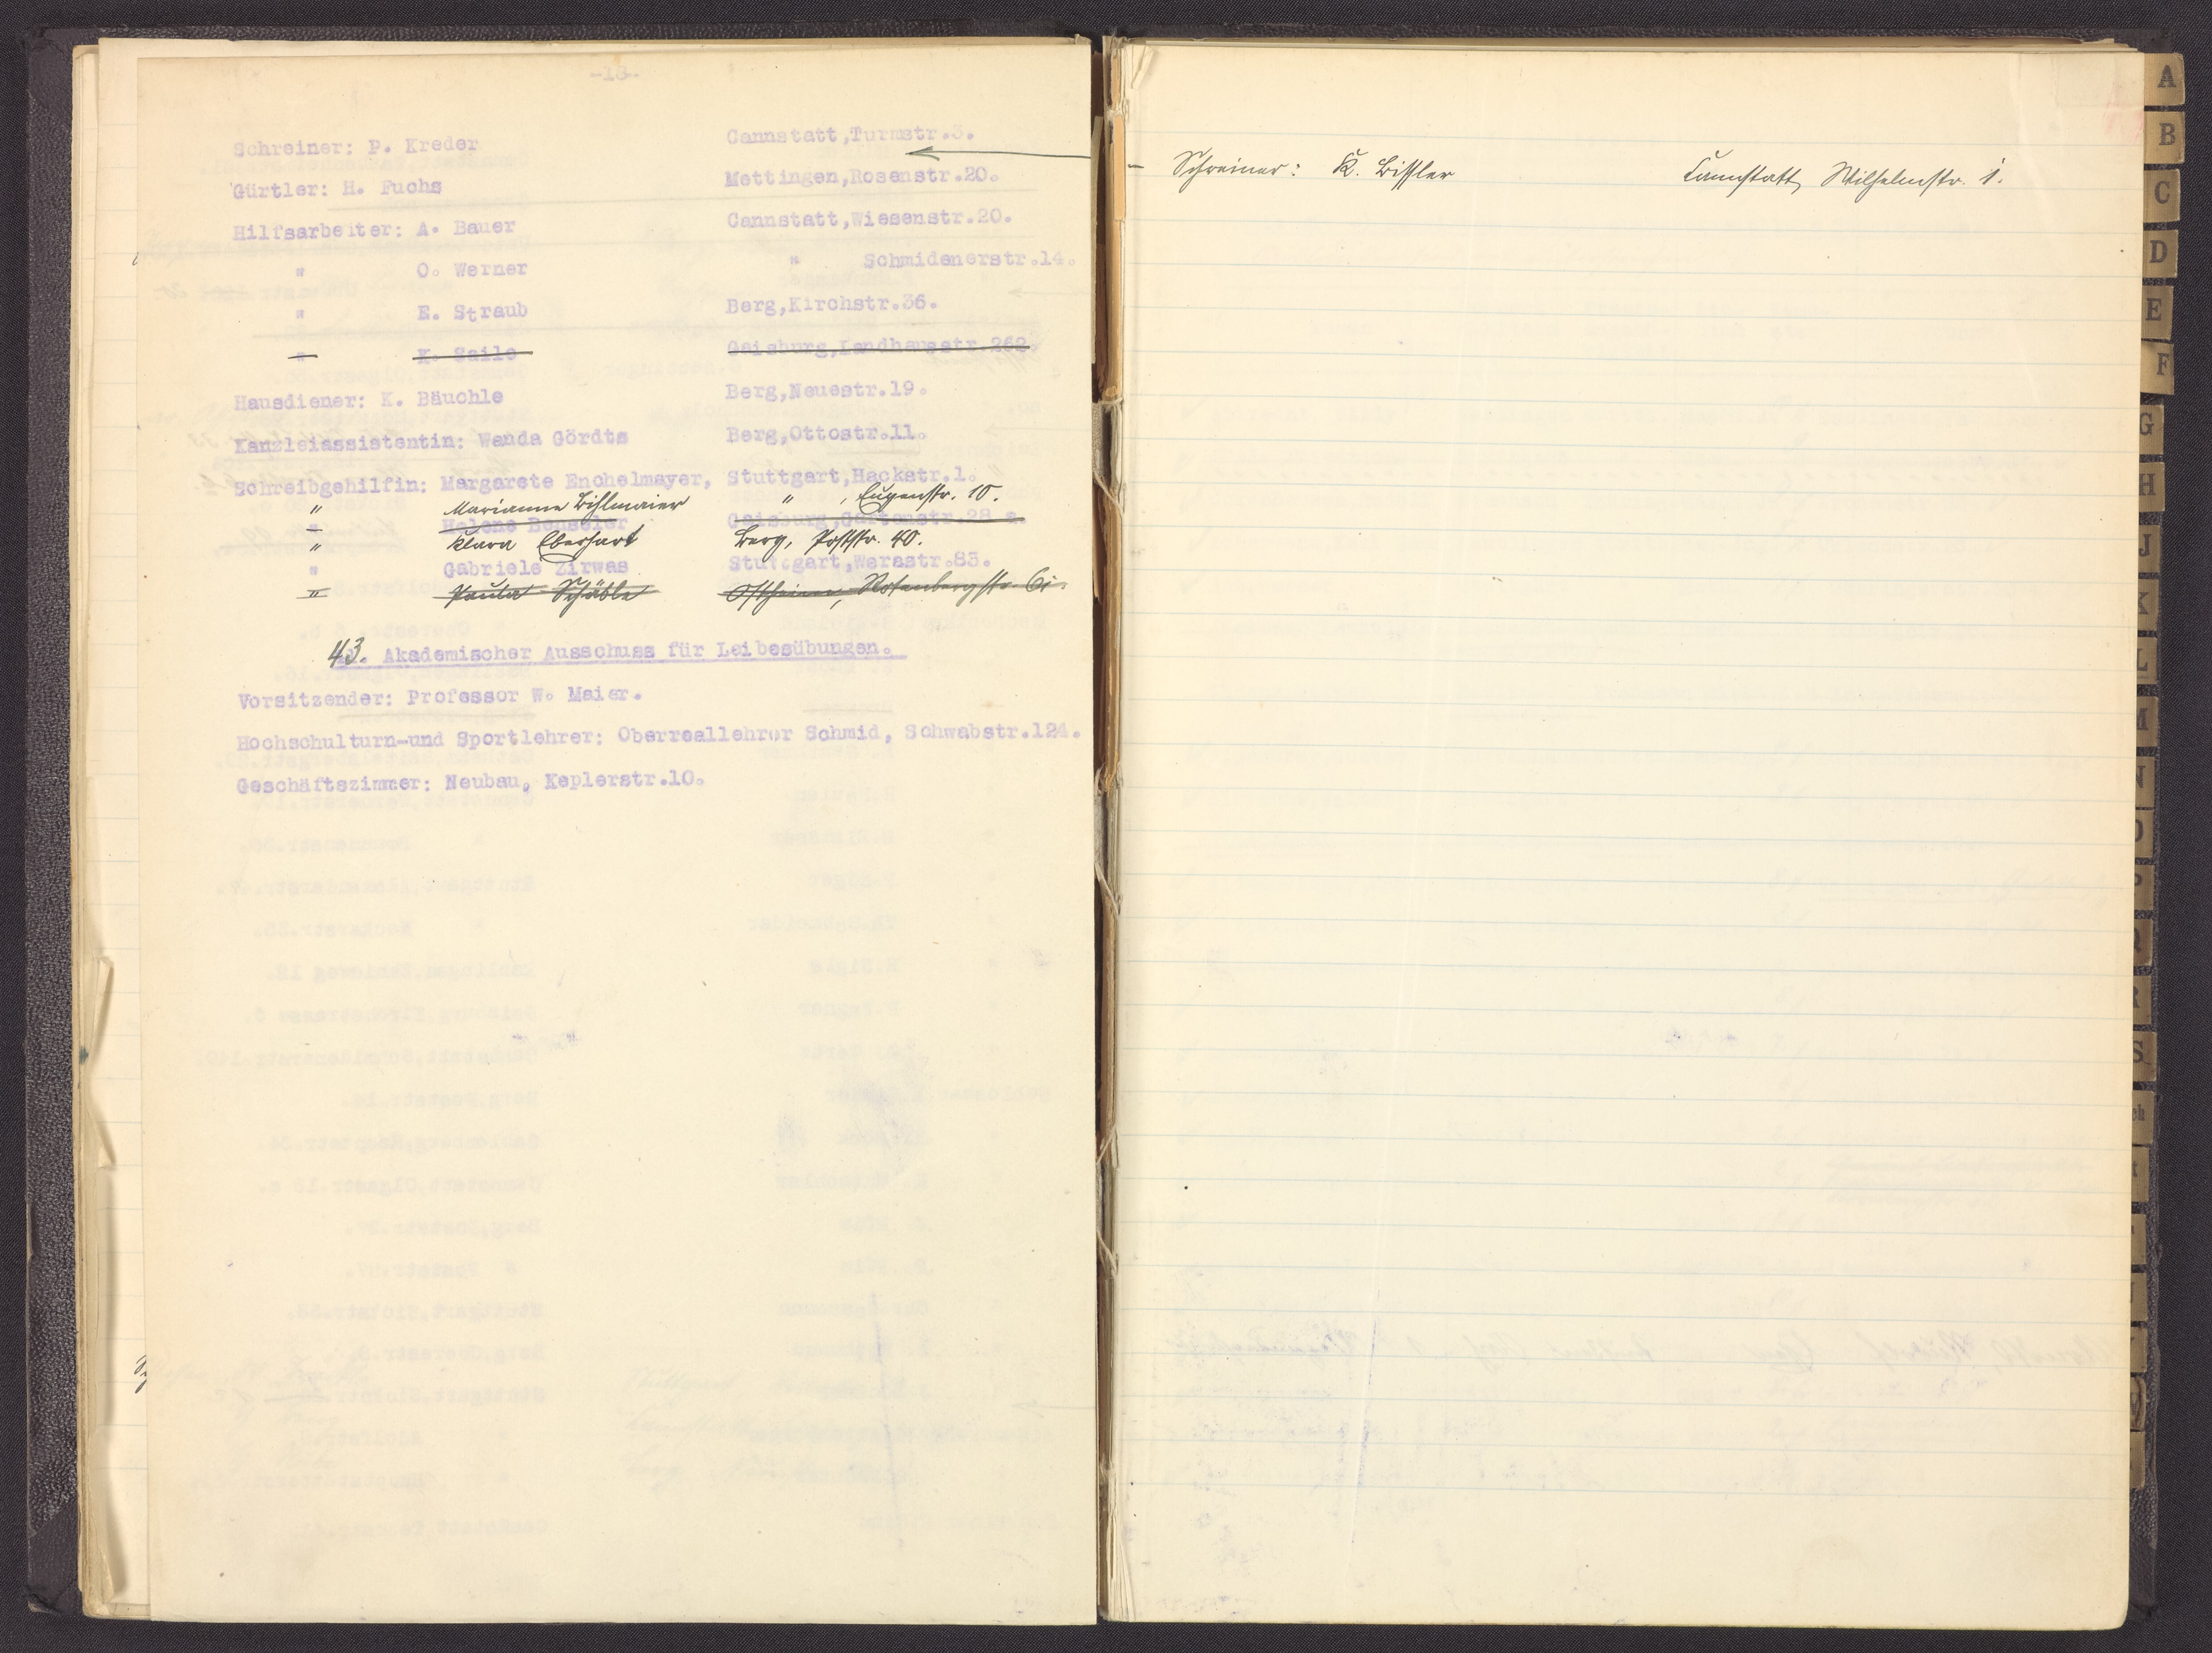 -18-
Schreiner: P. Kreder Cannstatt,Turmstr.3.
Gürtler: H. Fuchs Mettingen,Rosenstr.20.
Hilfsarbeiter: A. Bauer Cannstatt,Wiesenstr.20.
" O. Werner " Schmidenerstr.14.
" E. Straub Berg,Kirchstr.36.
" K. Saile Gaisburg,Landhausstr.262
Hausdiener: K. Bäuchle Berg,Neuestr.19.
Kanzleiassistentin: Wanda Gördts Berg,Ottostr.11.
Schreibgehilfin: Margarete Enchelmayer, Stuttgart,Hackstr.1.
" Marianne Bihlmaier " , Eugenstr. 10.
" Helene Gaisburg,Gartenstr.28 a.
" Klara Eberhart Berg, Poststr. 40.
" Gabriele Zirwas Stuttgart,Werastr.83.
" Paula Schäble Ostheim, Rotenbergstr.
43. Akademischer Ausschuss für Leibesübungen.
Vorsitzender: Professor W. Maier.
Hochschulturn-und Sportlehrer: Oberreallehrer Schmid, Schwabstr.124.
Geschäftszimmer: Neubau, Keplerstr.10.
– Schreiner: K. Bissler Cannstatt, Wilhelmstr. 1.
A
B
C
D
E
F
G
H
J
K
L
M
N
O
P
Q
R
S